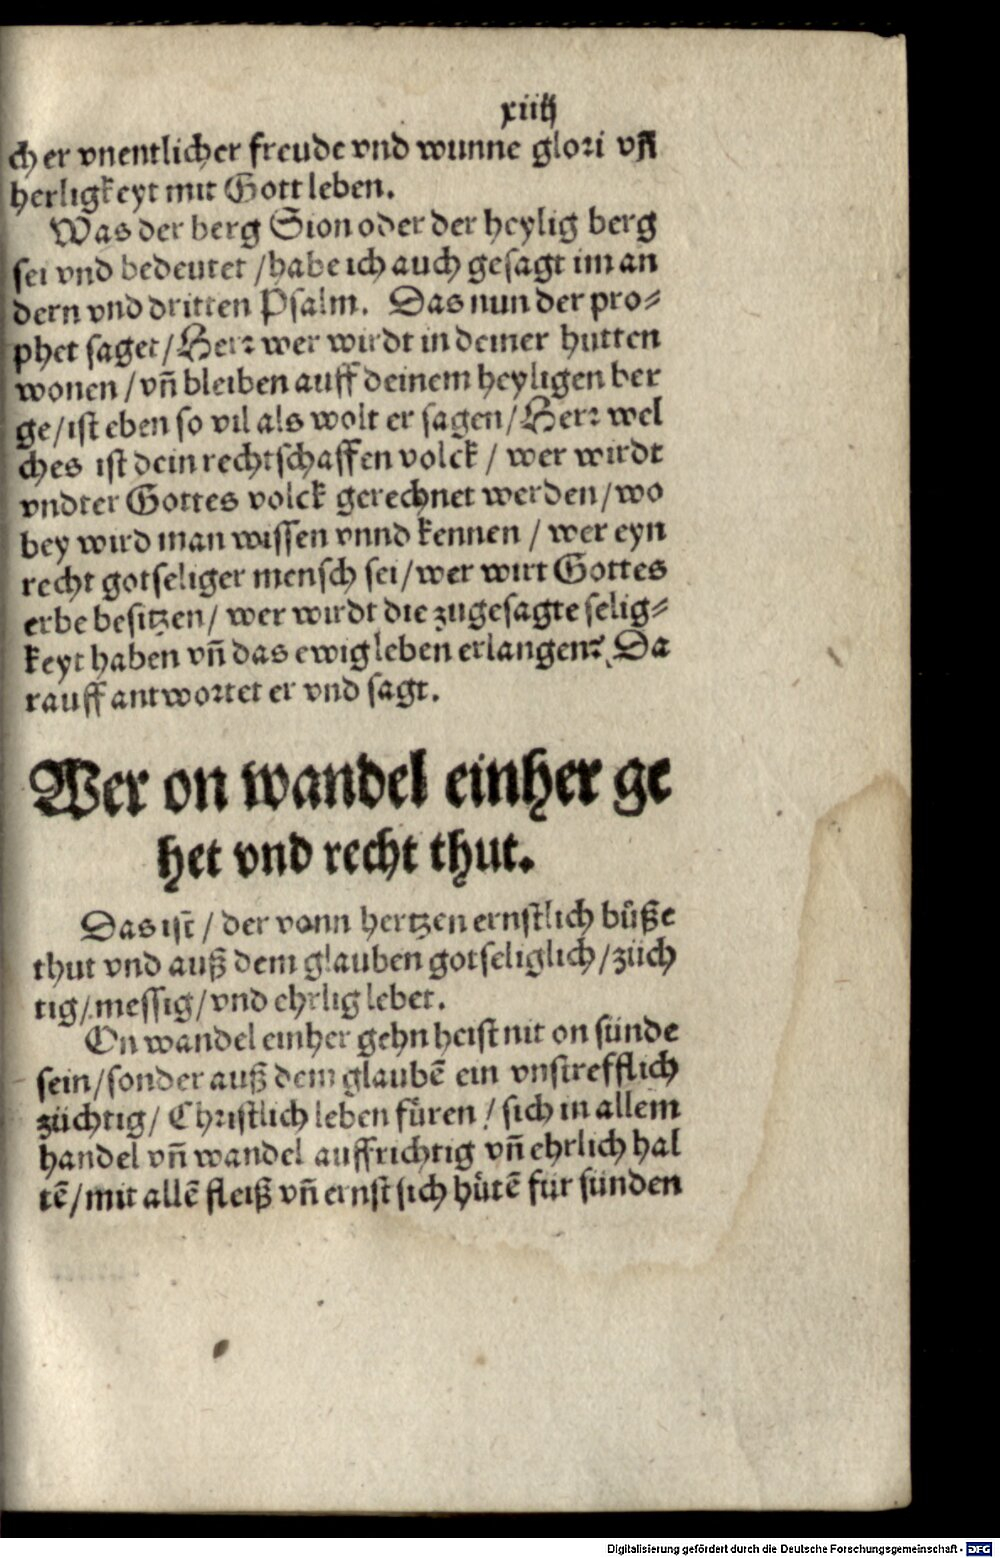 xiiij
cher vnentlicher freude vnd wunne glori vñ
herligkeyt mit Gott leben.
Was der berg Sion oder der heylig berg
sei vnd bedeutet / habe ich auch gesagt im an
dern vnd dritten Psalm. Das nun der pro⸗
phet saget / Herr wer wirdt in deiner hutten
wonen / vñ bleiben auff deinem heyligen ber
ge / ist eben so vil als wolt er sagen / Herr wel
ches ist dein rechtschaffen volck / wer wirdt
vndter Gottes volck gerechnet werden / wo
bey wird man wissen vnnd kennen / wer eyn
recht gotseliger mensch sei / wer wirt Gottes
erbe besitzen / wer wirdt die zugesagte selig⸗
keyt haben vñ das ewig leben erlangen? Da
rauff antwortet er vnd sagt.
Wer on wandel einher ge
het vnd recht thut.
Das ist / der vonn hertzen ernstlich bůße
thut vnd auß dem glauben gotseliglich / züch
tig / messig / vnd ehrlig lebet.
On wandel einher gehn heist nit on sünde
sein / sonder auß dem glaubē ein vnstrefflich
züchtig / Christlich leben fůren / sich in allem
handel vñ wandel auffrichtig vñ ehrlich hal
tē / mit allē fleiß vñ ernst sich hůtē für sünden
Digitalisierung gefördert durch die Deutsche Forschungsgemeinschaft - DFG